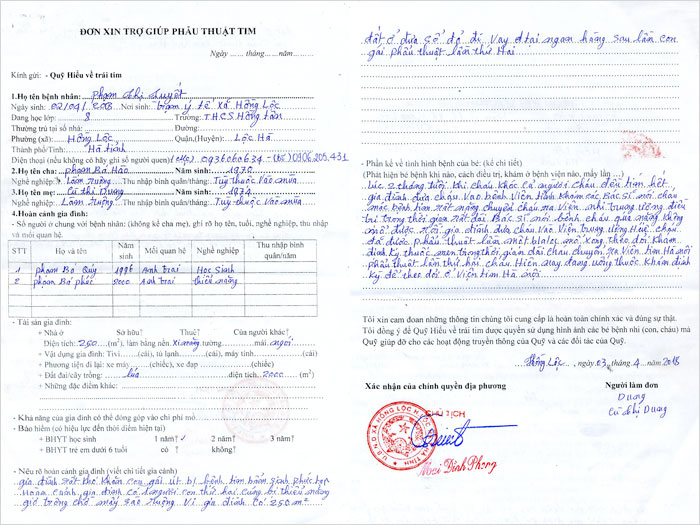 ĐƠN XIN TRỢ GIÚP PHẪU THUẬT TIM
Ngày ...... tháng......năm.........
Kính gửi: - Quỹ Hiếu về trái tim
1.Họ tên bệnh nhân: Phạm Thị Tuyết
Ngày sinh: 02/04/ Nơi sinh: Trạm y tế xã Hồng Lộc
Đang học lớp: 8 Trường: T.H.C.S. Hồng Tân
Thường trú tại số nhà: Đường:
Phường (xã): Hồng Lộc Quận.(Huyện): Lộc Hà
Thành phố/Tỉnh: Hà Tĩnh
Điện thoại (nếu không có hãy ghi số người quen) (mẹ) 0936060634 - (bố) 0906.205.431
2.Họ tên cha: Phạm Bá Hào Năm sinh: 1970
Nghề nghiệp: Làm ruộng Thu nhập bình quân/tháng: Tuỳ thuộc vào mùa
3.Họ tên mẹ: Cù Thị Dung Năm sinh: 1974
Nghề nghiệp: Làm ruộng Thu nhập bình quân/tháng: Tuỳ thuộc vào mùa
4.Hoàn cảnh gia đình:
- Số người ở chung với bệnh nhân: (không kể cha mẹ), ghi rõ họ tên, tuổi, nghề nghiệp, thu nhập
và mối quan hệ.
STT Họ và tên Năm sinh Mối quan hệ Nghề nghiệp Thu nhập bình quân/năm
1 Phạm Bá Quý 1996 Anh trai Học sinh
2 Phạm Bá Phúc 2000 Anh trai thiểu năng
- Tài sản gia đình:
+ Nhà ở Sở hữu? Thuê? Của người khác?
Diện tích: 250 (m²), làm bằng nền Xi măng tường mái ngói
+ Vật dụng gia đình: Tivi (cái), tủ lạnh (cái), máy tính (cái)
+ Phương tiện đi lại: xe máy (chiếc), xe đạp (chiếc)
+ Đất đai/cây trồng: lúa diện tích 2000 (m²)
+ Những đặc điểm khác:
- Khả năng của gia đình có thể đóng góp vào chi phí mổ
- Bảo hiểm (có hiệu lực đến thời điểm hiện tại)
+ BHYT học sinh 1 năm? ✓ 2 năm? 3 năm?
+ BHYT trẻ em dưới 6 tuổi có ? không?
- Nêu rõ hoàn cảnh gia đình (viết chi tiết gia cảnh)
gia đình rất khó khăn con gái út bị bệnh tim bẩm sinh phức tạp
Hoàn cảnh gia đình có người con thứ hai cũng bị thiểu năng
giờ trông chờ mấy sào ruộng. Vì gia đình có 250 m²
đất ở đưa sổ đỏ đi vay ở tại ngân hàng sau lần con
gái phẫu thuật lần thứ Hai
- Phần kể về tình hình bệnh của bé: (kể chi tiết)
(Phát hiện bệnh khi nào, cách điều trị, khám ở bệnh viện nào, mấy lần ...)
lúc 2 tháng tuổi khi cháu khóc cả người cháu đều tím hết
gia đình đưa cháu vào bệnh viện tỉnh khám các Bác sĩ nói cháu
mắc bệnh tim rất nặng chuyển cháu ra viện nhi trung ương điều
trị trong thời gian rất dài Bác sĩ nói bệnh cháu quá nặng không
mổ được. Rồi gia đình đưa cháu vào Viện trung ương Huế cháu
đã được phẫu thuật lần một blalos mổ xong theo dõi khám
định kỳ thuốc men trong thời gian dài cháu chuyển ra viện tim Hà nội
phẫu thuật lần thứ hai cháu Hiện nay đang uống thuốc khám định
kỳ để theo dõi ở viện tim Hà nội
Tôi xin cam đoan những thông tin chúng tôi cung cấp là hoàn toàn chính xác và đúng sự thật.
Tôi đồng ý để Quỹ Hiếu về trái tim được quyền sử dụng hình ảnh các bé bệnh nhi (con, cháu) mà
Quỹ giúp đỡ cho các hoạt động truyền thông của Quỹ và các đối tác của Quỹ.
Hồng Lộc, ngày 03 tháng 4 năm 2018
Xác nhận của chính quyền địa phương
Người làm đơn
Dung
Cù Thị Dung
CHỦ TỊCH
Mai Đình Phong